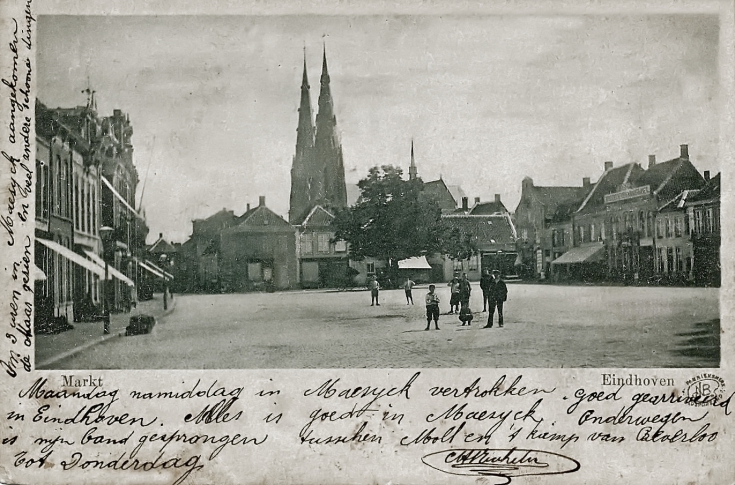 Om 3 uren in Maesyck aangekomen
de Maas gesien en veel andere schoone dingen
Markt
Eindhoven
Maandag namiddag in Maesyck vertrokken. Goed gearriveerd
in Eindhoven. Alles is goed in Maesyck. Onderwegen
is myn band gesprongen tusschen Moll en 't kamp van Beverloo
Tot Donderdag